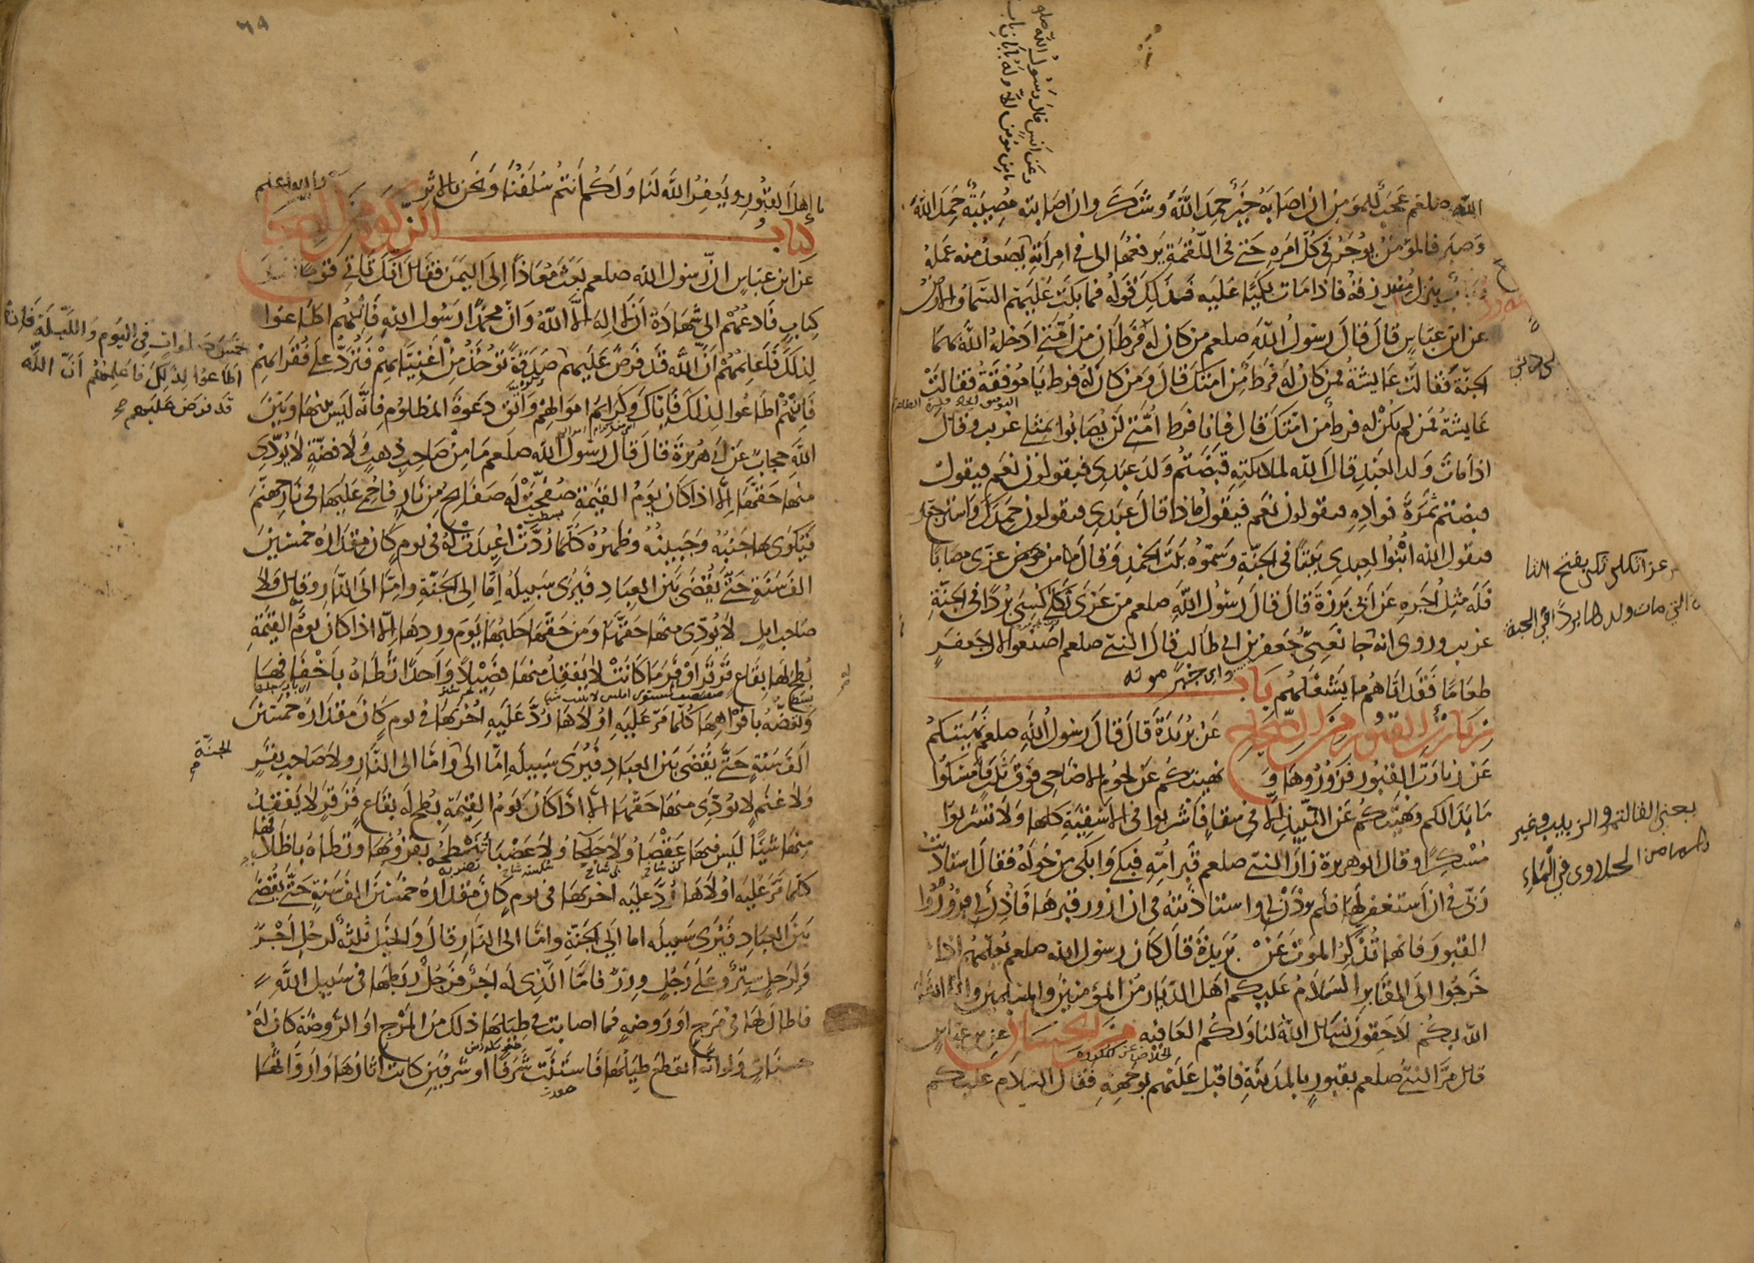 وعن انس قال رسول الله صلع
ما من مؤمن الا وله بابان باب
الله صلعم عجب للمؤمن ان اصابه خير حمد الله وشكر وان اصابته مصيبة حمد الله
وصبر فالمؤمن يوجر في كل امره حتى في اللقمة يرفعها الى في امراته يصعد منه عمله
وباب ينزل منه رزقه فاذا مات بكيا عليه فذلك قوله فما بكت عليهم السماء والارض
عن ابن عباس قال قال رسول الله صلعم من كان له فرطان من امتي ادخله الله بهما
الجنة فقالت عايشة فمن كان له فرط من امتك قال ومن كان له فرط يا موفقة فقالت
عايشة فمن لم يكن له فرط من امتك قال فانا فرط امتي لن يصابوا بمثلي غريب وقال
اذا مات ولد العبد قال الله لملائكته قبضتم ولد عبدي فيقولون نعم فيقول
قبضتم ثمرة فواده فيقولون نعم فيقول ماذا قال عبدي فيقولون حمدك واسترجع
فيقول الله ابنوا لعبدي بيتا في الجنة وسموه بيت الحمد وقال من عزى مصابا
فله مثل اجره عن ابي برزة قال قال رسول الله صلعم من عزى ثكلى كسي بردا في الجنة
غريب وروي انه جا نعي جعفر بن ابي طالب قال النبي صلعم اصنعوا لال جعفر
طعاما فقد اتاهم ما يشغلهم باب
زيارة القبور من الصحاح عن بريدة قال قال رسول الله صلعم نهيتكم
عن زيارة القبور فزوروها و نهيتكم عن لحوم الاضاحي فوق ثلث فامسكوا
ما بدا لكم ونهيتكم عن النبيذ الا في سقاء فاشربوا في الاسقية كلها ولا تشربوا
مسكرا وقال ابو هريرة زار النبي صلعم قبر امه فبكى وابكى من حوله فقال استاذنت
ربي في ان استغفر لها فلم يؤذن لي واستاذنته في ان ازور قبرها فاذن لي فزوروا
القبور فانها تذكر الموت عن بريدة قال كان رسول الله صلعم يعلمهم اذا
خرجوا الى المقابر السلام عليكم اهل الديار من المؤمنين والمسلمين وانا انشا
الله بكم لاحقون نسال الله لنا ولكم العافيه من الحسان عن ابن عباس
قال مر النبي صلعم بقبور بالمدينة فاقبل عليهم بوجهه فقال السلام عليكم
يا اهل القبور ويغفر الله لنا ولكم انتم سلفنا ونحن بالاثر والله اعلم
كتاب الزكوة من الصحاح
عن ابن عباس ان رسول الله صلعم بعث معاذا الى اليمن فقال انك تاتي قوما
كتاب فادعهم الى شهادة ان لا اله الا الله وان محمدا رسول الله فان هم اطاعوا
لذلك فاعلمهم ان الله قد فرض عليهم صدقة تؤخذ من اغنيائهم فترد على فقرائهم
فان هم اطاعوا لذلك فاياك وكرائم اموالهم واتق دعوة المظلوم فانه ليس بينها وبين
الله حجاب عن ابي هريرة قال قال رسول الله صلعم ما من صاحب ذهب ولا فضة لا يؤدي
منها حقها الا اذا كان يوم القيمة صفحت له صفائح من نار فاحمي عليها في نار جهنم
فيكوى بها جنبه وجبينه وظهره كلما ردت اعيدت له في يوم كان مقداره خمسين
الف سنة حتى يقضى بين العباد فيرى سبيله اما الى الجنة واما الى النار وقال ولا
صاحب ابل لا يؤدي منها حقها ومن حقها حلبها يوم وردها الا اذا كان يوم القيمة
بطح لها بقاع قرقر اوفر ما كانت لا يفقد منها فصيلا واحدا تطأه باخفافها
وتعضه بافواهها كلما مر عليه اولاها رد عليه اخريها في يوم كان مقداره خمسين
الف سنة حتى يقضى بين العباد فيرى سبيله اما الى واما الى النار ولا صاحب بقر
ولا غنم لا يؤدي منها حقها الا اذا كان يوم القيمة بطح له بقاع قرقر لا يفقد
منها شيئا ليس فيها عقصا ولا جلحا ولا عضبا تنطحه بقرونها وتطأه باظلافها
كلما مر عليه اولاها رد عليه اخريها في يوم كان مقداره خمسين الف سنة حتى يقضى
بين العباد فيرى سبيله اما الى الجنة واما الى النار قال والخيل ثلثة لرجل اجر
ولرجل ستر وعلى رجل وزر فاما الذي له اجر فرجل ربطها في سبيل الله
فاطال لها في مرج او روضة فما اصابت في طيلها ذلك من المرج او الروضة كان له
حسنات ولو انه انقطع طيلها فاستنت شرفا او شرفين كانت اثارها وارواثها
خمس صلوات في اليوم والليلة فان
اطاعوا لذلك فاعلمهم ان الله
قد فرض عليهم
الجنة